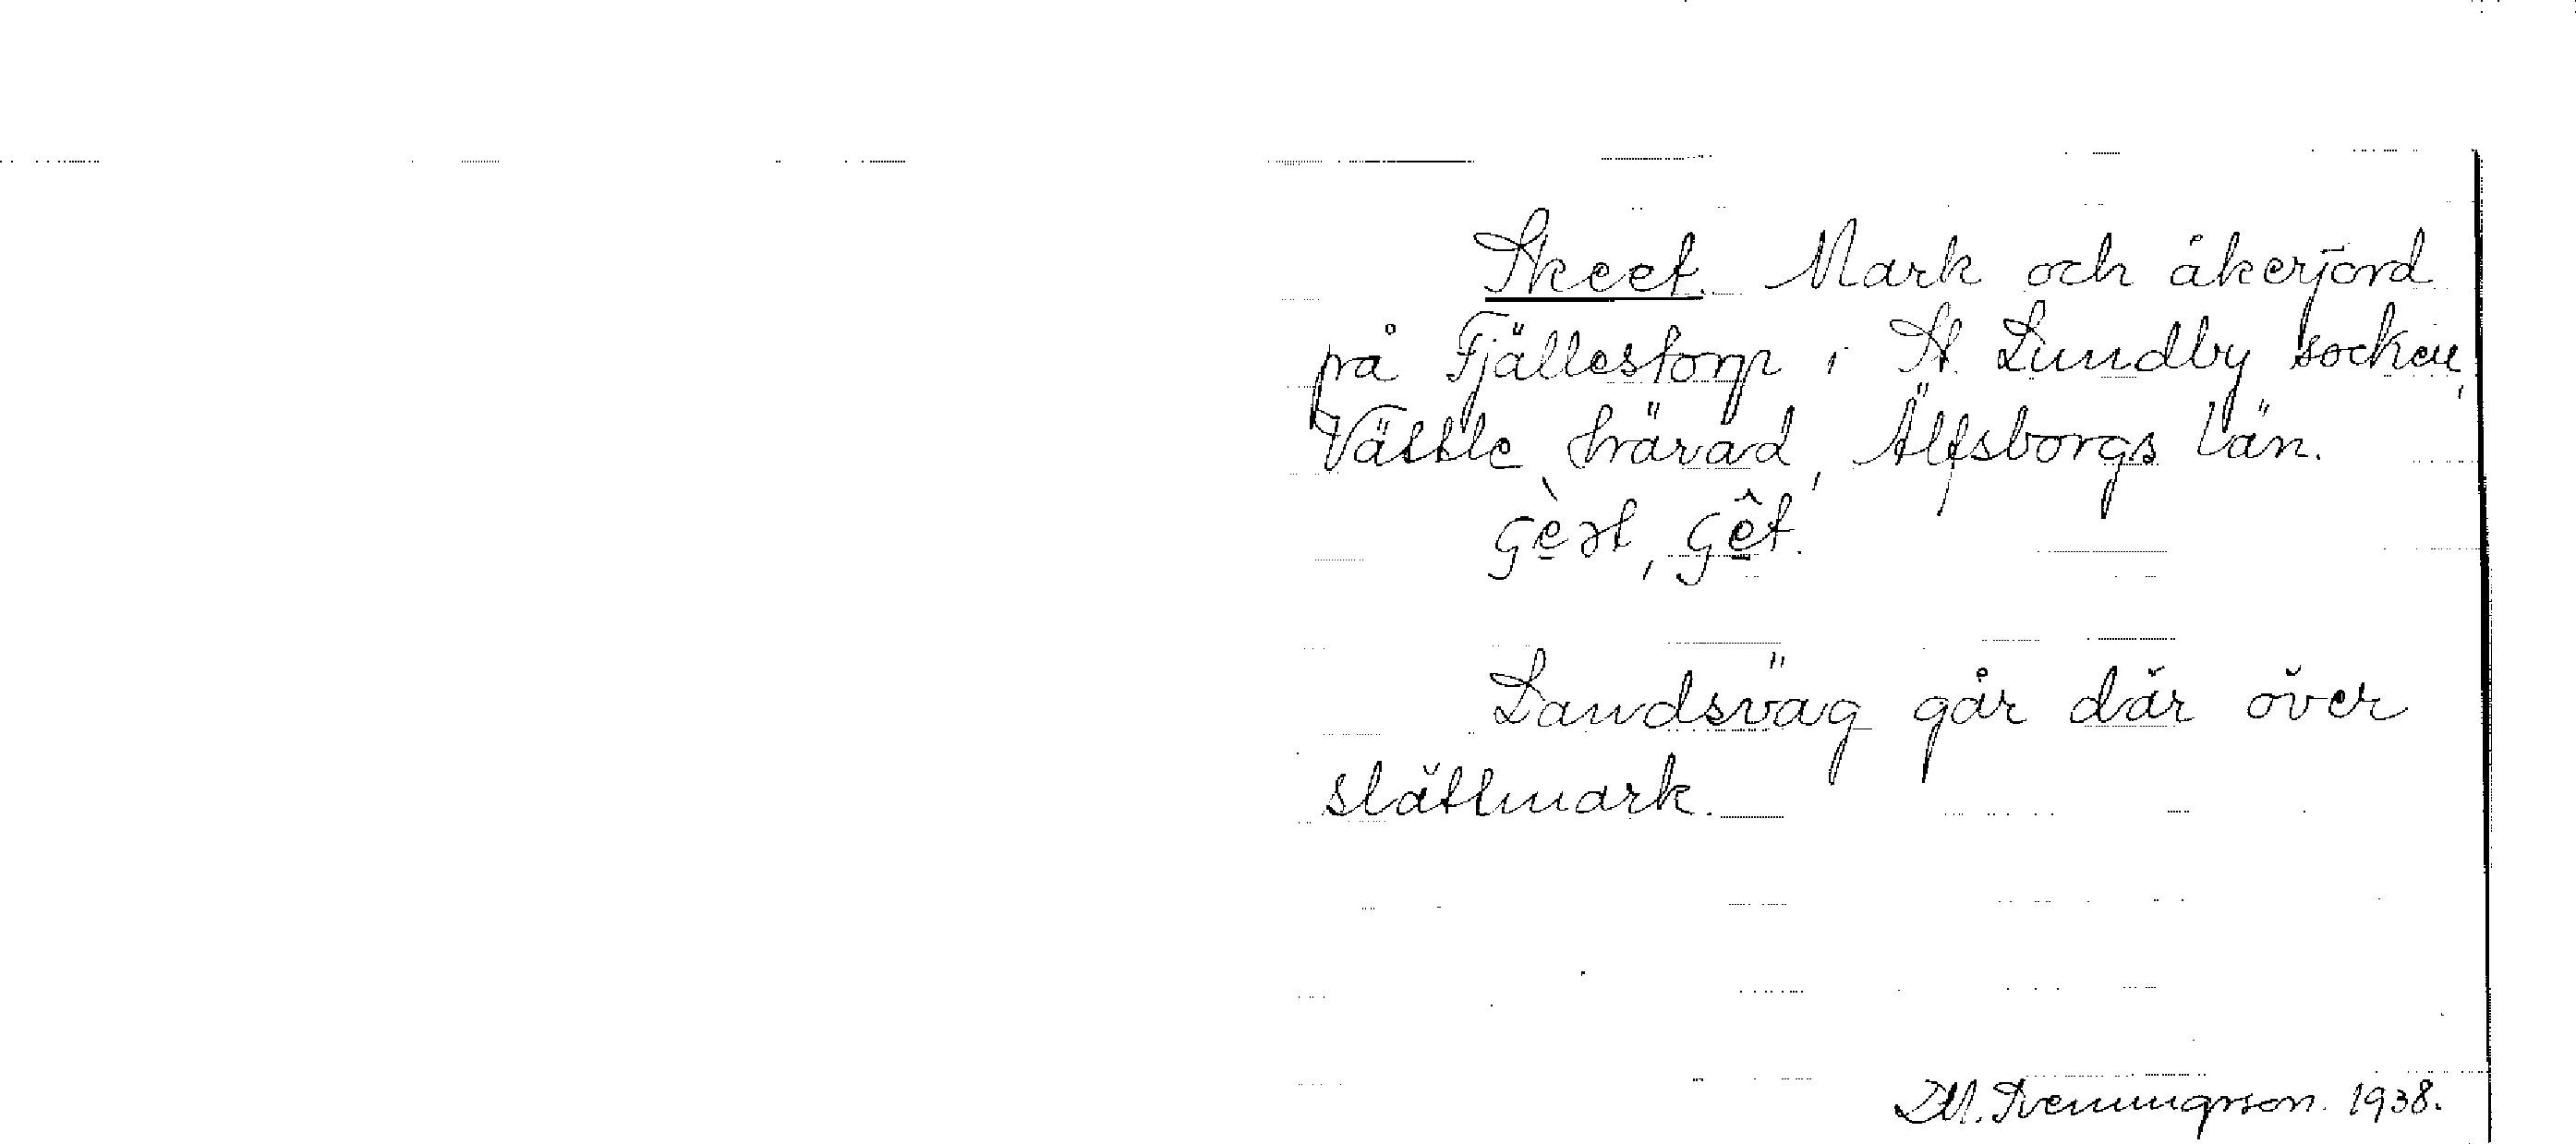 Skeet. Mark och åkerjord
på Fjällestorp i St. Lundby socken,
Vättle härad, Älfsborgs län.
Landsväg går där över
slättmark.
D.M. Svenungsson. 1938.